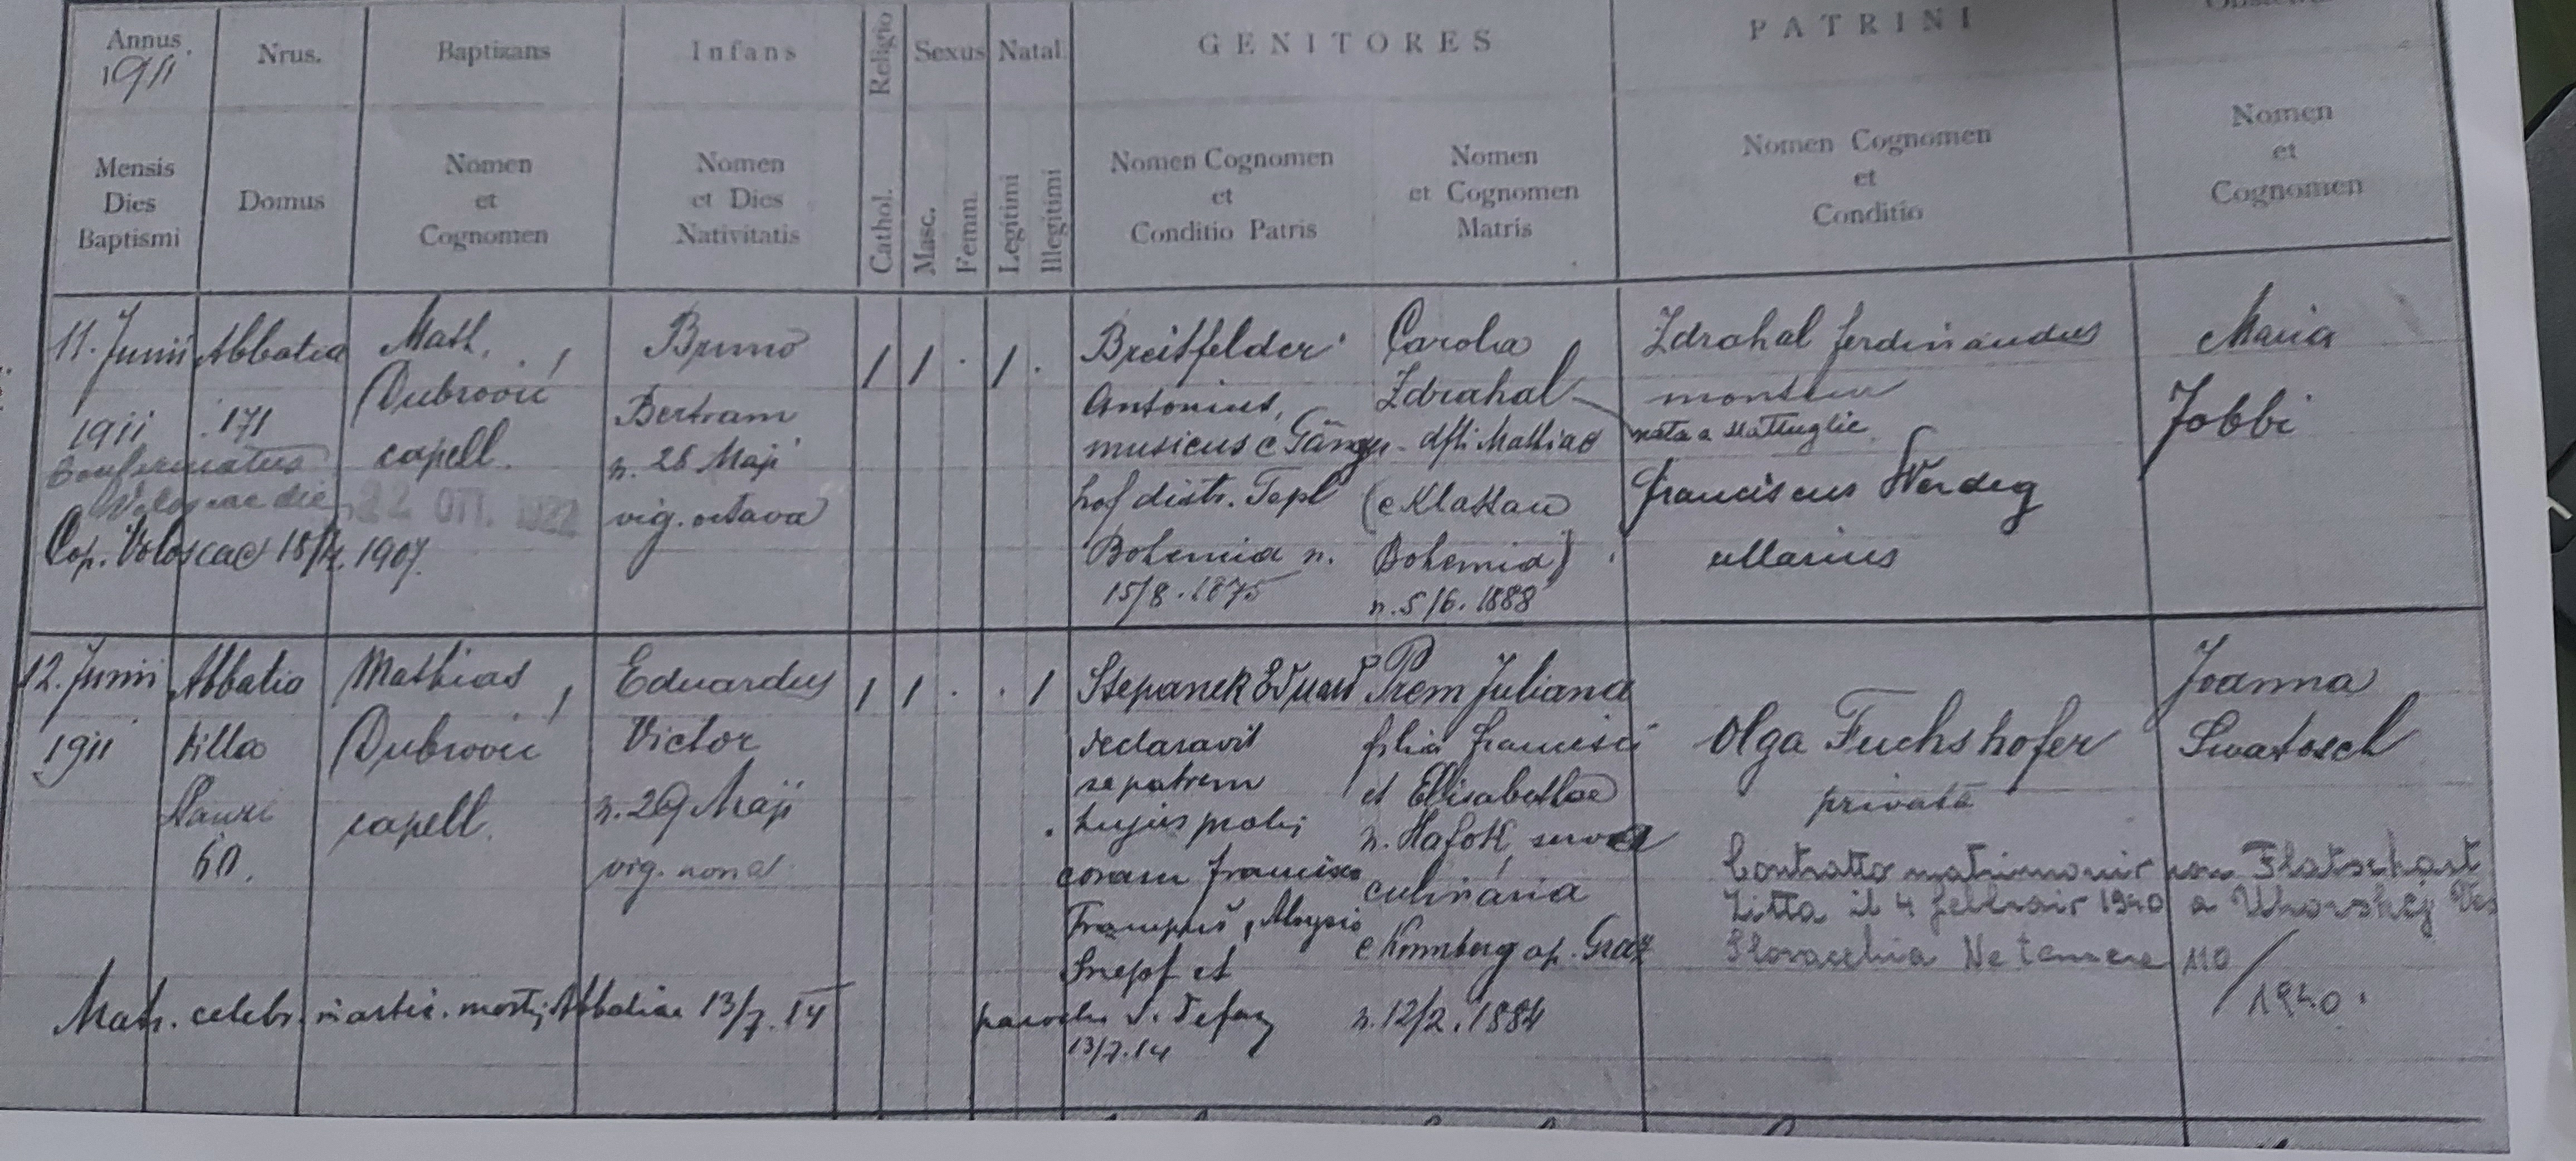 Annus 1911
Nrus.
Baptizans
Infans
Religio
Sexus
Natal.
GENITORES
PATRINI
Mensis
Dies
Baptismi
Domus
Nomen
et
Cognomen
Nomen
et Dies
Nativitatis
Cathol.
Masc.
Femm.
Legitimi
Illegitimi
Nomen Cognomen
et
Conditio Patris
Nomen
et Cognomen
Matris
Nomen Cognomen
et
Conditio
Nomen
et
Cognomen
11. Junii
1911
Confirmatus
die 22 OTT. 1922
Cop. Voloscae 1907.
Abbatia
171
Math.
Dubrović
capell.
Bruno
Bertram
n. 26 Maji
vig. octava
/ / . / .
Breitfelder
Antonius,
musicus e Gängu-
hof distr. Tepl
Bohemia n.
15/8. 1875
Carola
Zdrahal
Mathiae
(e Klattau
Bohemia)
n. 5/6. 1888
Zdrahal Ferdinandus
monteur
nata a Mattuglie
Franciscus
Maria
Jobbi
12. Junii
1911
Abbatia
Villa
60.
Mathias
Dubrović
capell.
Eduardus
Victor
n. 29 Maji
vig. nona
/ / . . /
Stepanek Eduard
declaravit
se patrem
hujus prolis
coram Francisco
Aloysio
et
13/7.14
Prem Juliana
filia Francisci
et Elisabethae
n. Hafok, serva
culinaria
e Kornberg ap. Graz
n. 12/2. 1884
Olga Fuchshofer
privata
Contratto matrimonio con Flatschart
Zitta il 4 febbraio 1940 a Uhorskej Ves
Slovacchia Ne temere 110
/1940.
Joanna
Swatosch
Matr. celebr. Abbatiae 13/7. 14